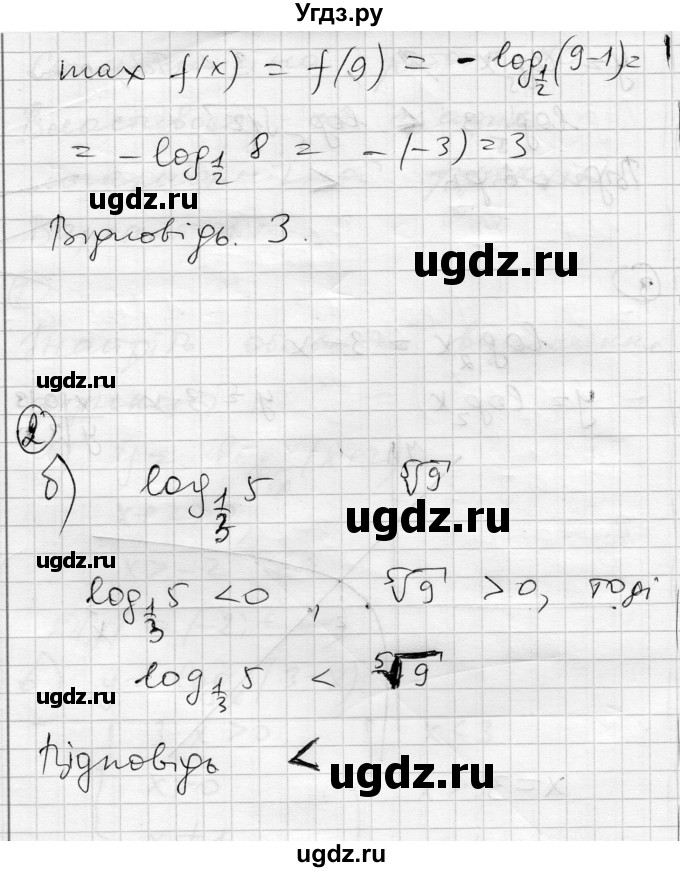 Угдз.ру
max f(x) = f(9) = - log_{1/2}(9-1) =
= - log_{1/2} 8 = - (-3) = 3
ugdz.ru
Відповідь. 3.
ugdz.ru
ugdz.ru
2
б) log_{1/3} 5 ⁵√9
ugdz.ru
ugdz.ru
log_{1/3} 5 < 0, ⁵√9 > 0, тоді
log_{1/3} 5 < ⁵√9
ugdz.ru
Відповідь <
ugdz.ru
ugdz.ru